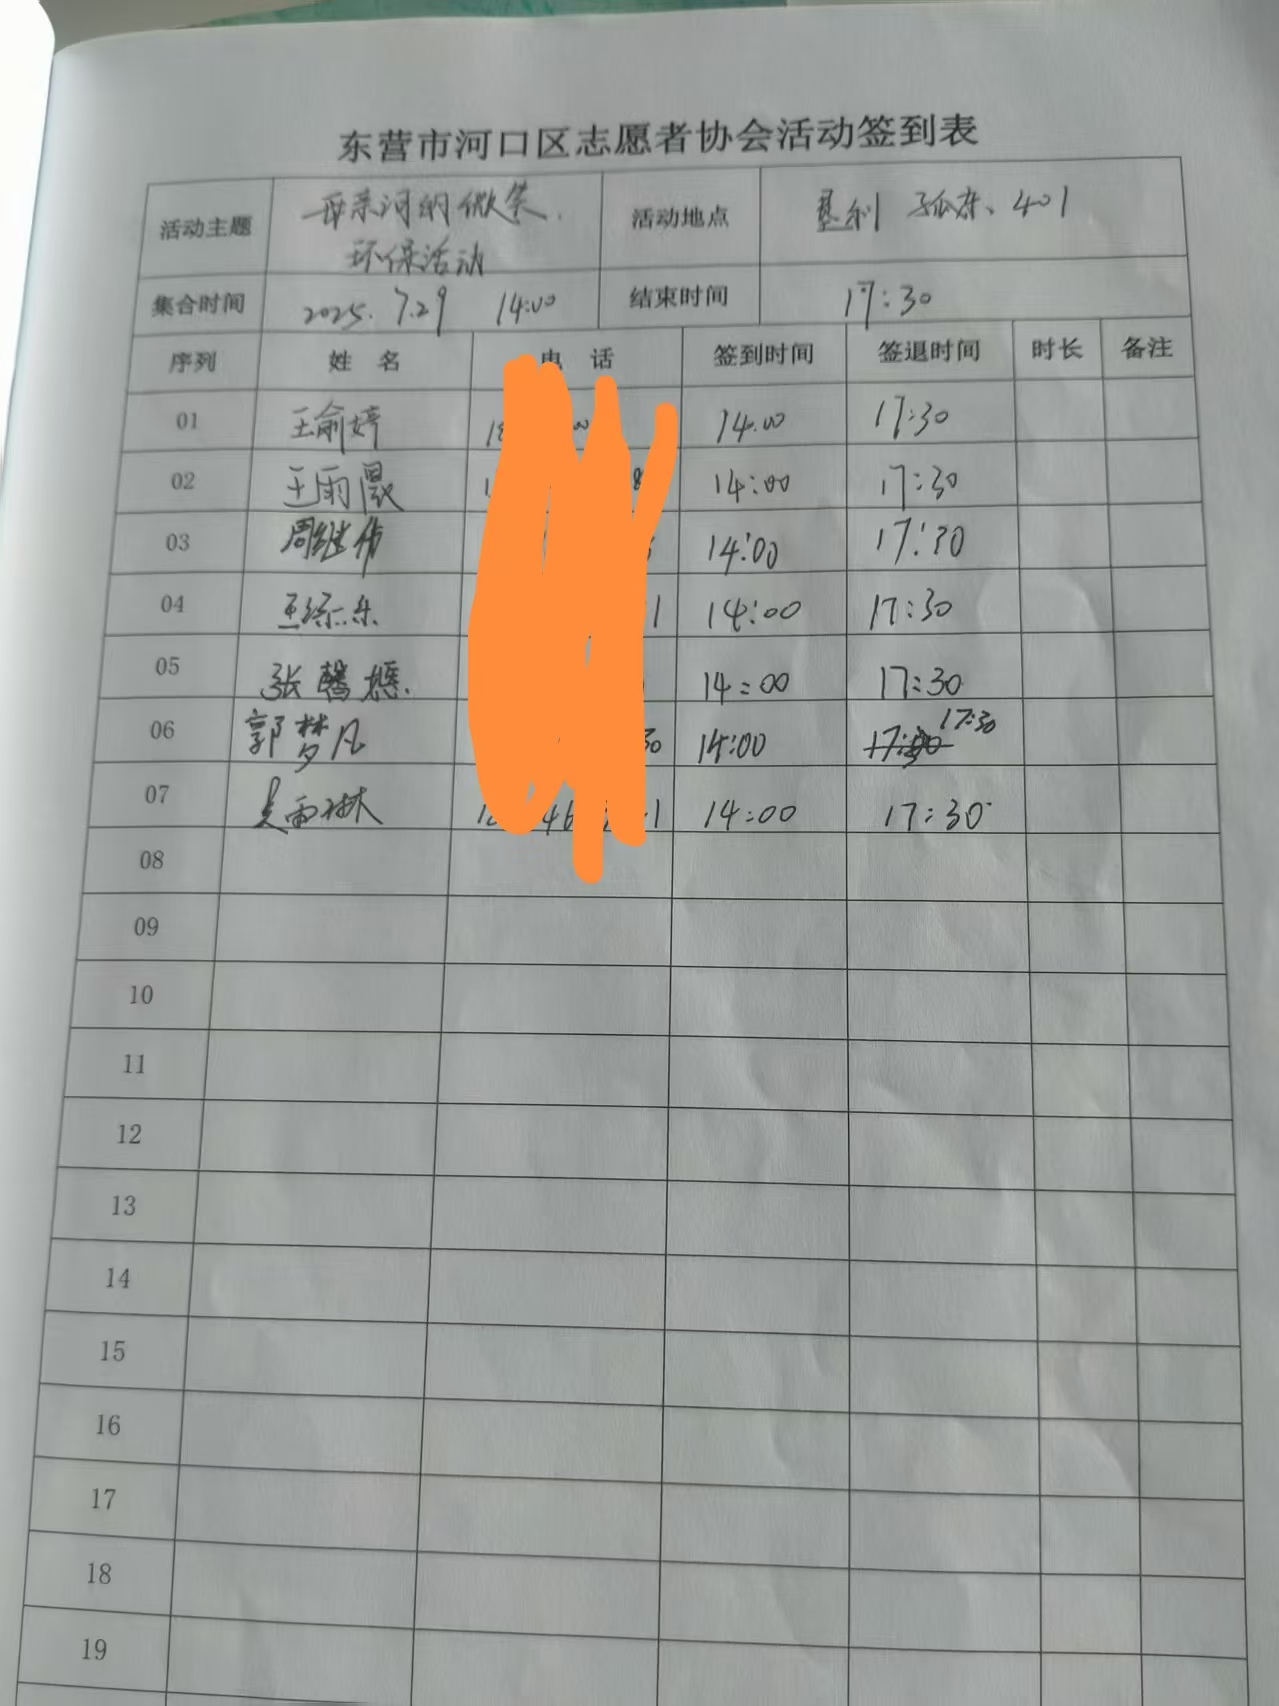 东营市河口区志愿者协会活动签到表
活动主题 母亲河的微笑. 活动地点 垦利 孤东、401
环保活动
集合时间 2025.7.29 14:00 结束时间 17:30
序列 姓名 电话 签到时间 签退时间 时长 备注
01 王俞婷 14:00 17:30
02 王雨晨 14:00 17:30
03 周继伟 14:00 17:30
04 14:00 17:30
05 张馨 14:00 17:30
06 郭梦凡 14:00 17:30
07 吴雨琳 14:00 17:30
08
09
10
11
12
13
14
15
16
17
18
19